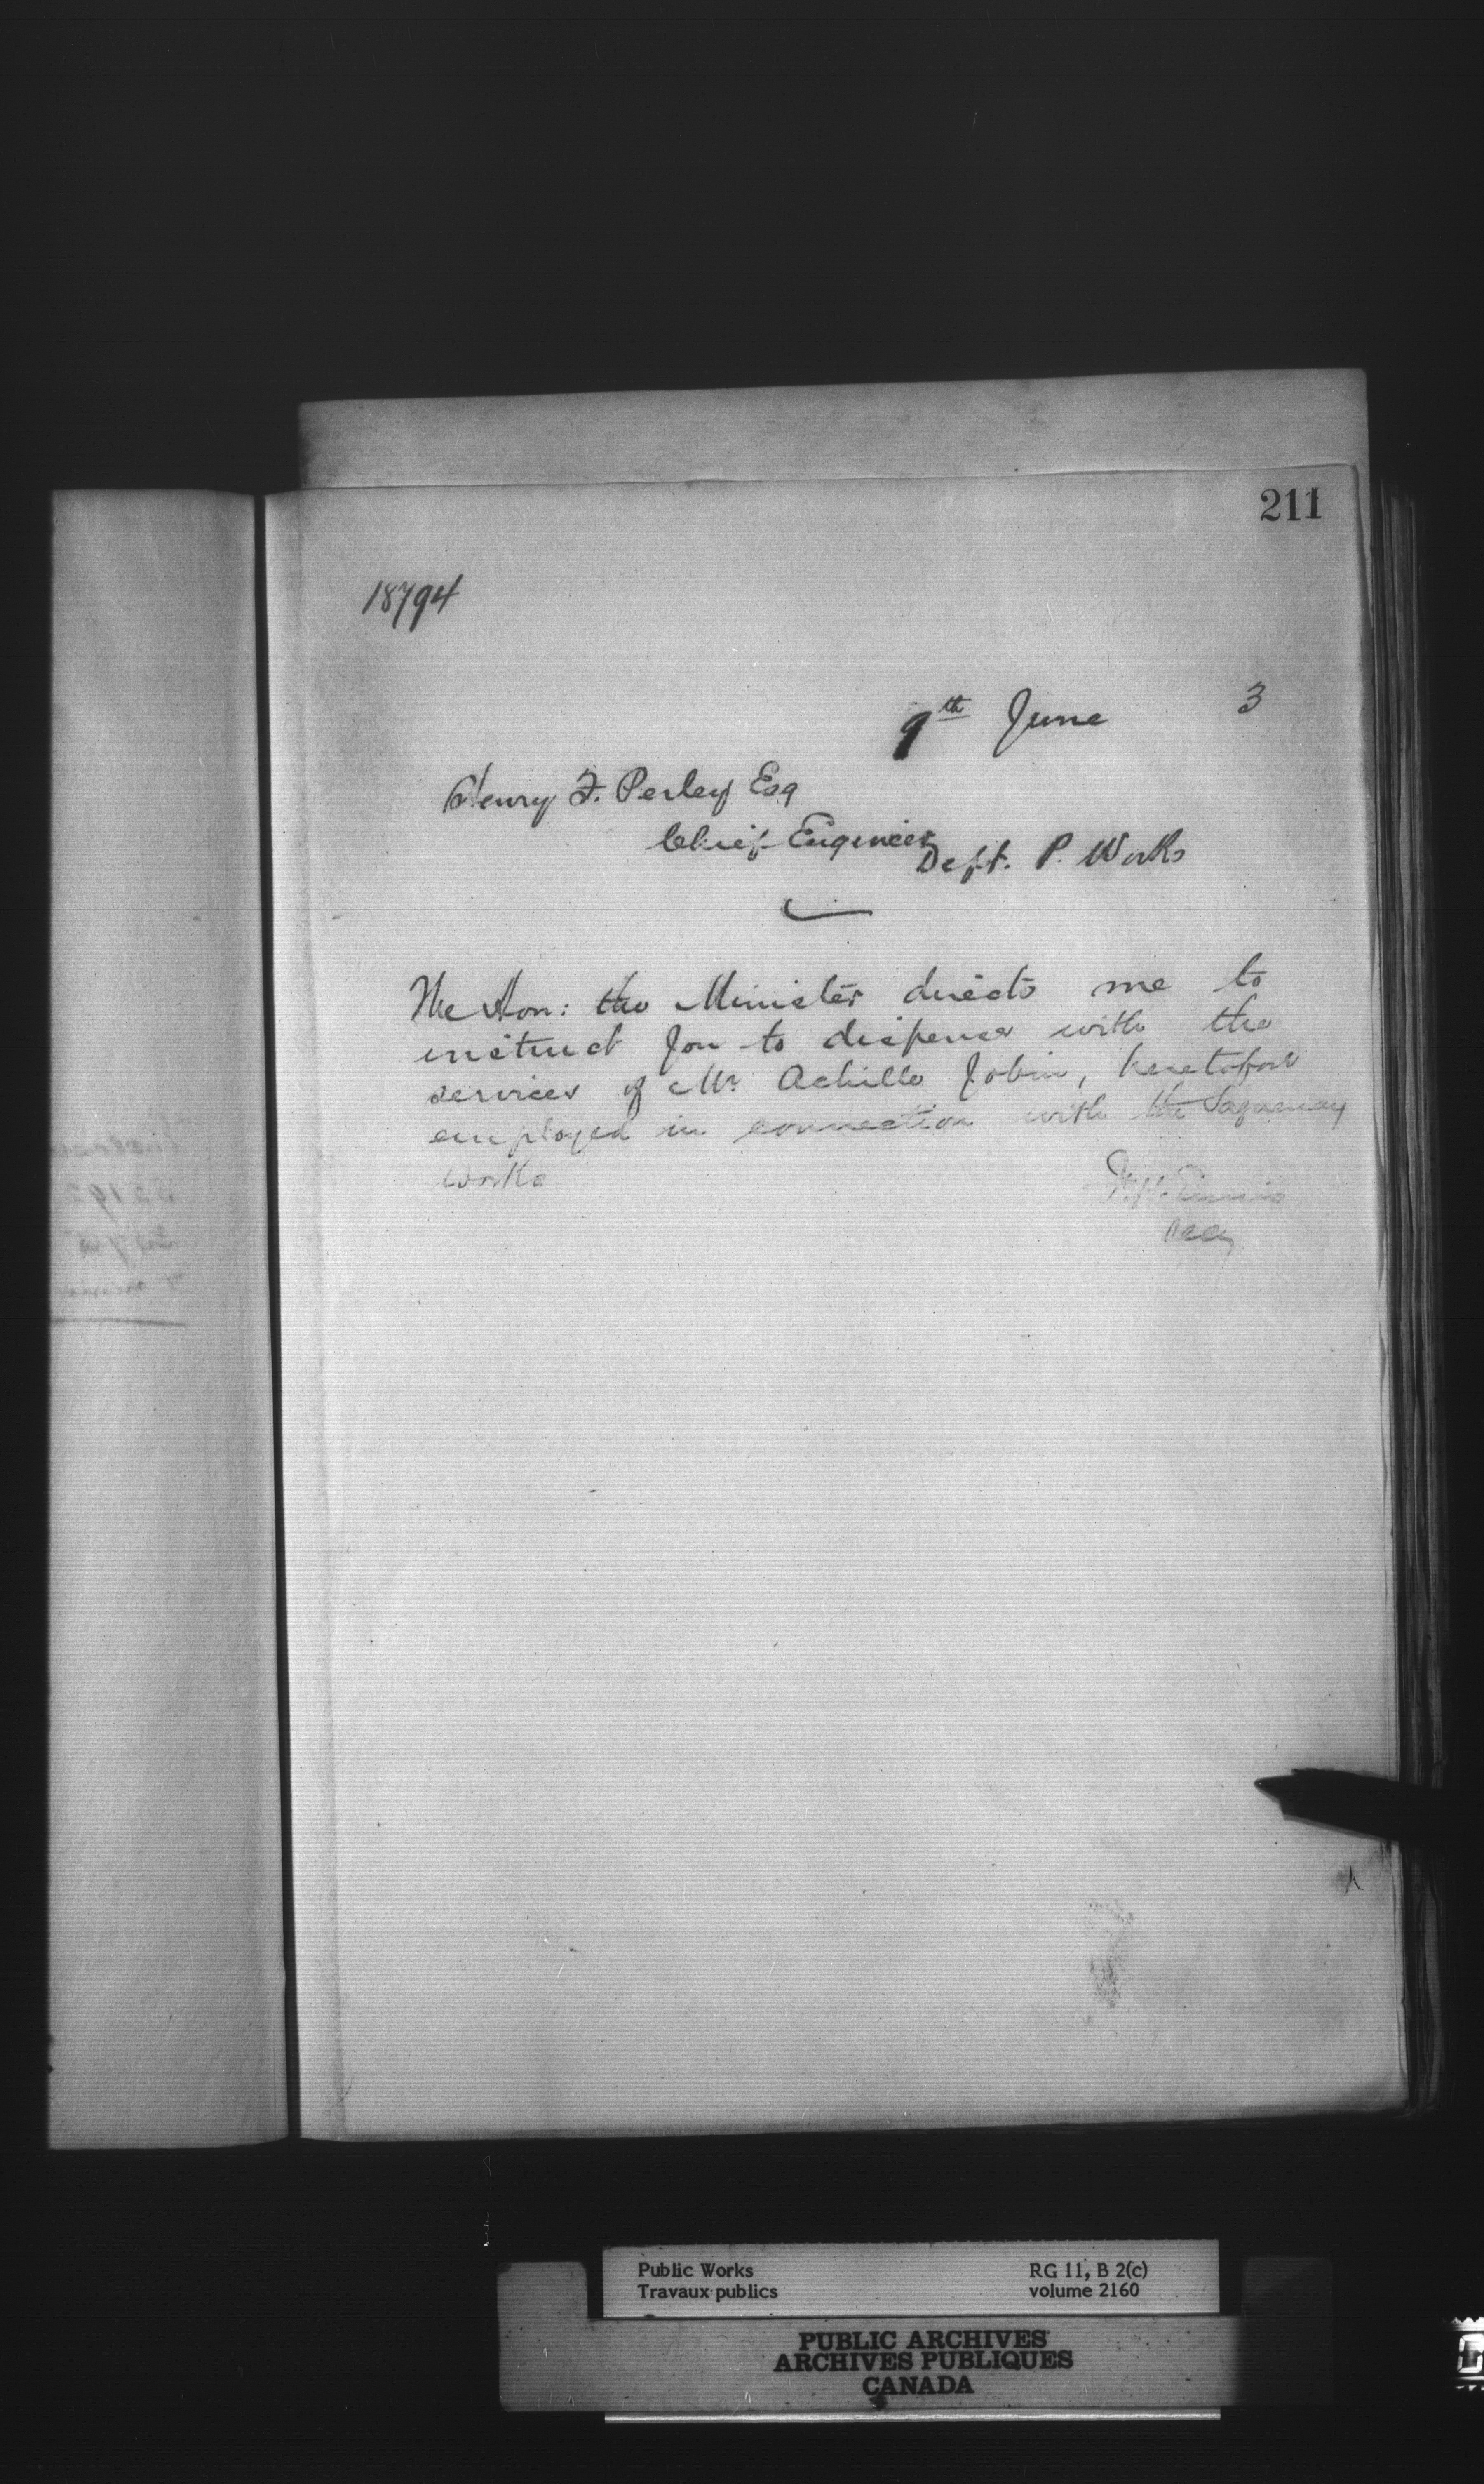 211
18794
9th June 3
Henry F. Perley Esq
Chief Engineer
Dept. P. Works
The Hon: the Minister directs me to
instruct you to dispense with the
services of Mr Achille Jobin, heretofore
employed in connection with the Saguenay
Works
F. H. Ennis
Secy
Public Works
Travaux publics
RG 11, B 2(c)
volume 2160
PUBLIC ARCHIVES
ARCHIVES PUBLIQUES
CANADA